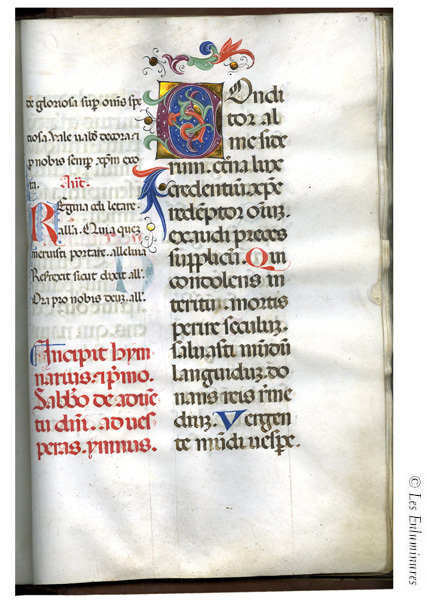 te gloriosa sup om̃s spe
tiosa Vale ualde decora ⁊ ꝓ
ꝓ nobis semꝑ xp̃m exo
ra. Añt.
Regina celi letare
alla. Quia quez
meruisti portare. alleluia
Resrexit sicut dixit all'.
Ora pro nobis deuz. all'.
Incipit hym
narius. ⁊ pͥmo.
Sabbõ de aduẽ
tu dñi. ad ues
peras. ymnus.
Condi
tor al
me side
rum. etña lux
credentiũ xp̃e
redẽptor oĩuz.
exaudi preces
supplicũ. Qui
condolens in
teritu. mortis
perire seculuz.
saluasti mũdũ
languiduz. do
nans reis rẽme
diuz. Vergen
te mũdi uespe.
© Les Enluminures